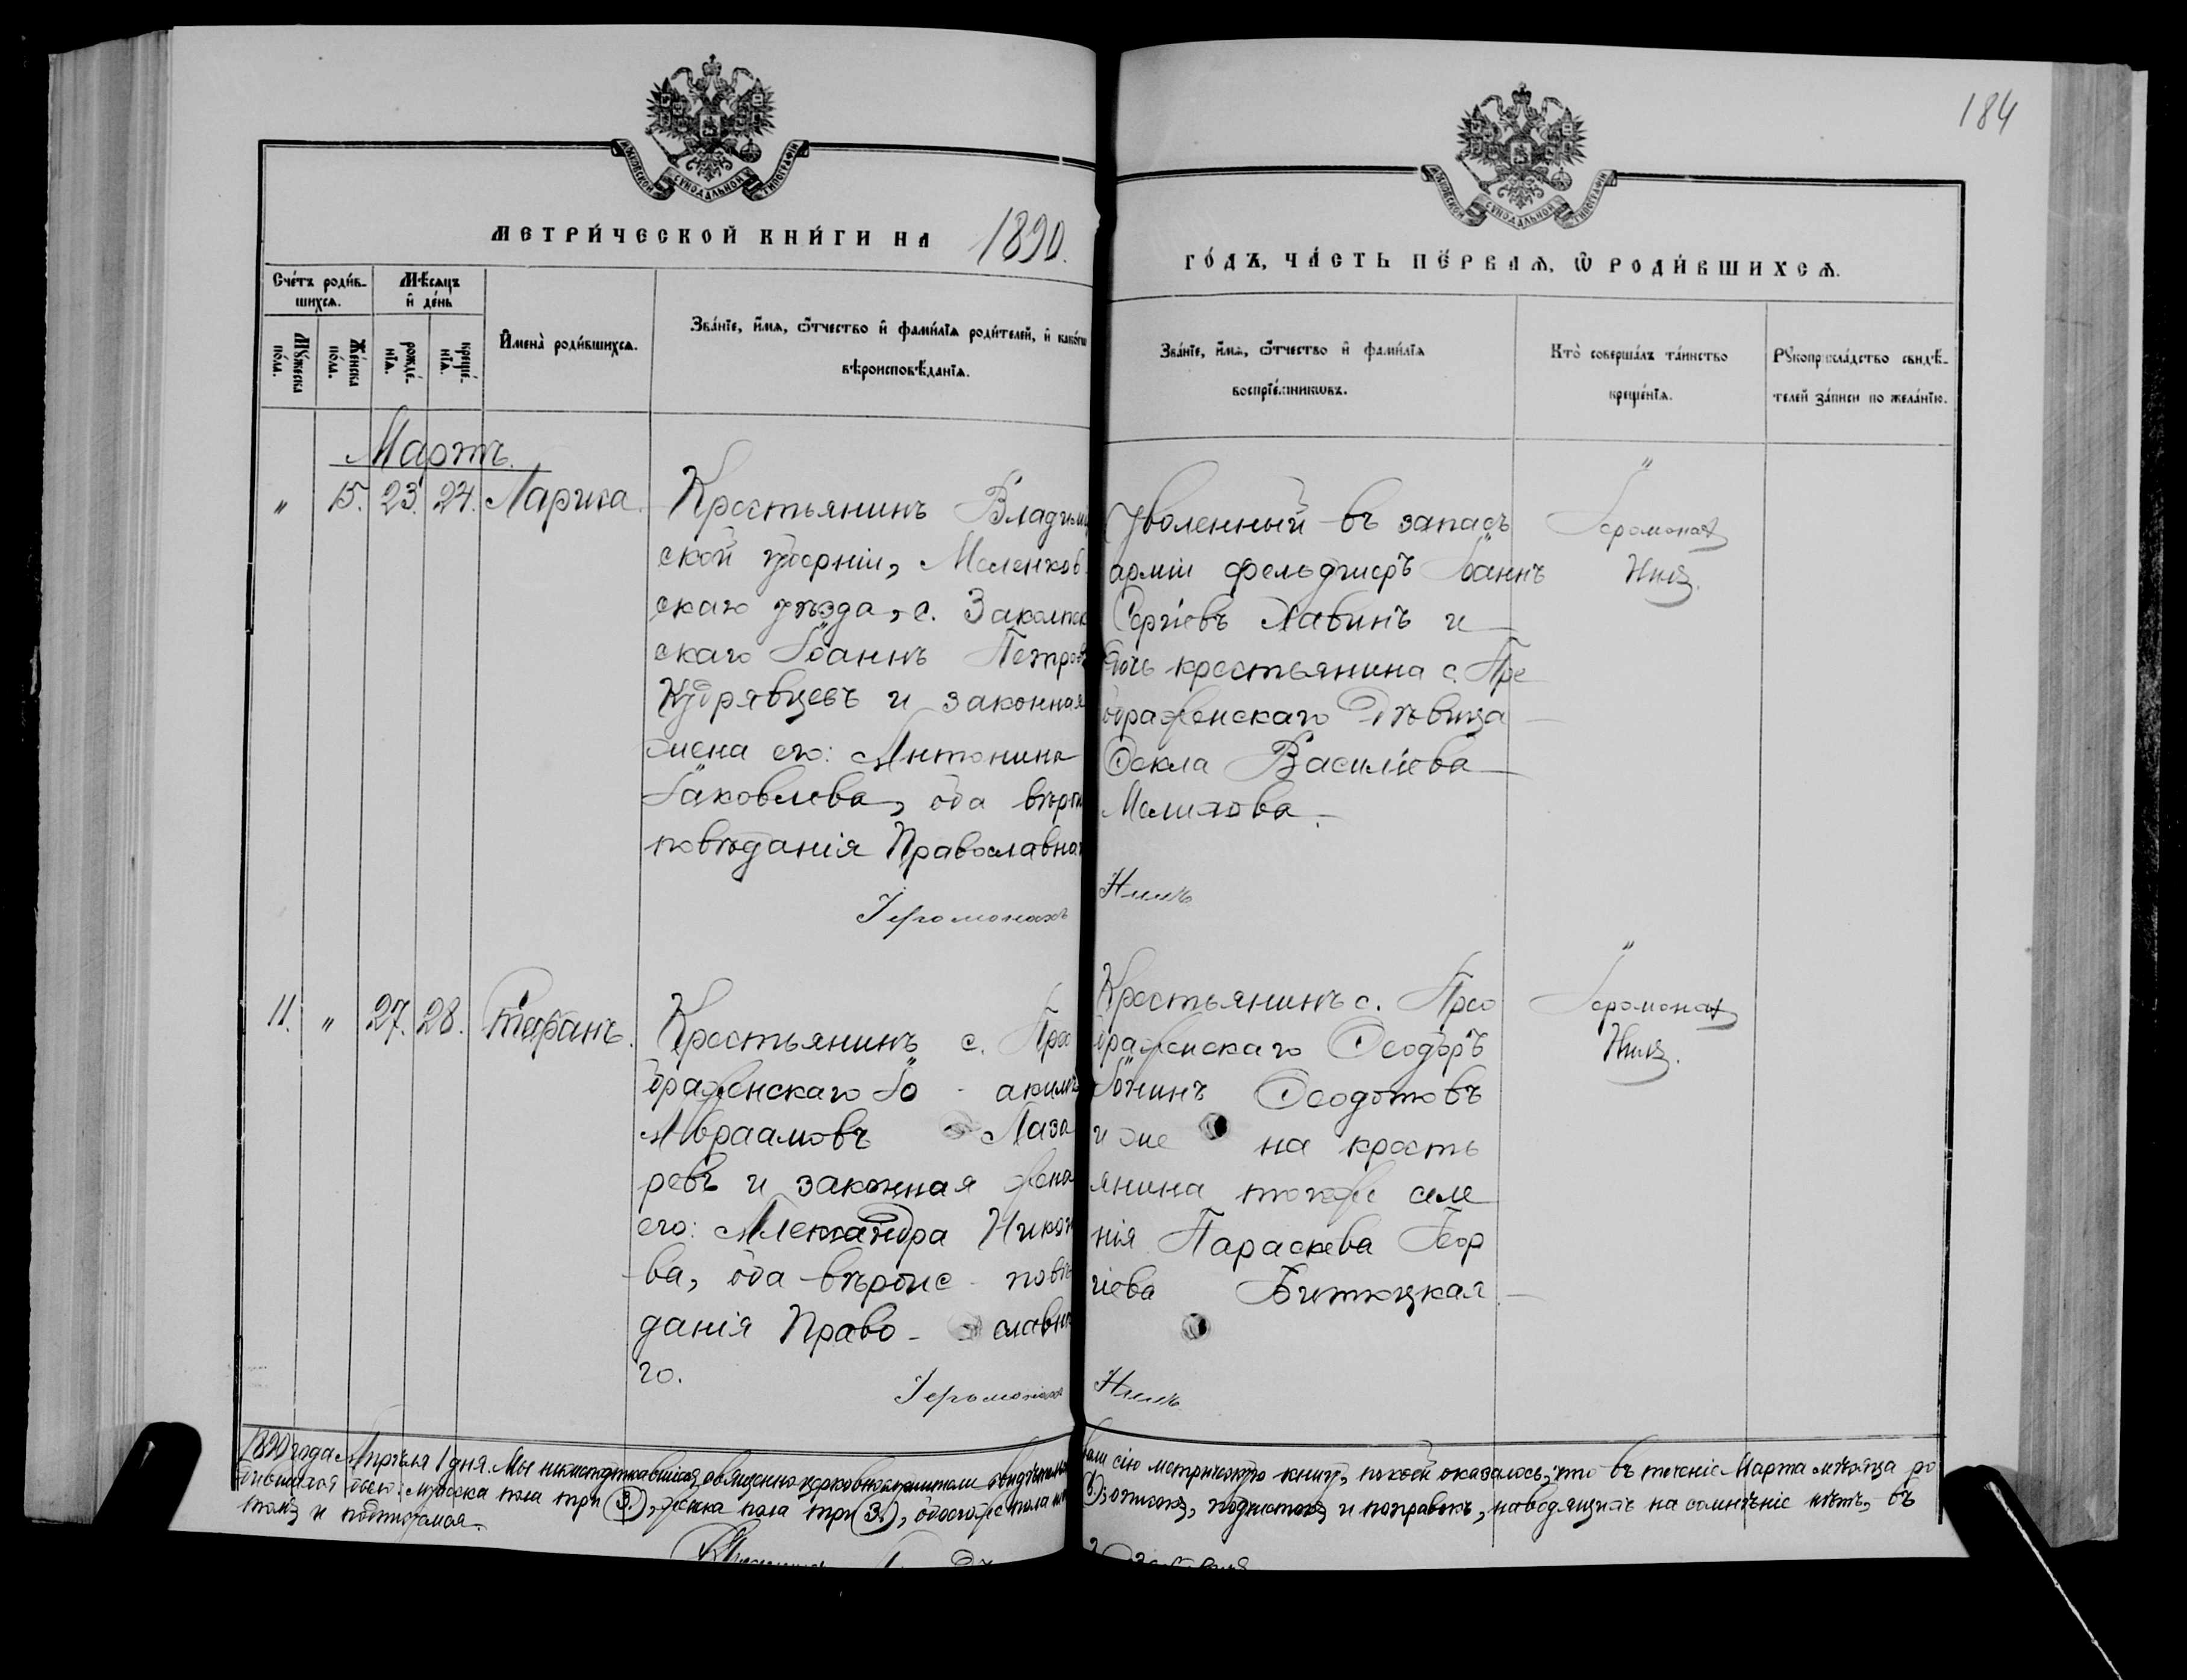 184
МОСКОВСКОЙ СѴНОДАЛЬНОЙ ТИПОГРАФІИ
МОСКОВСКОЙ СѴНОДАЛЬНОЙ ТИПОГРАФІИ
МЕТРИ́ЧЕСКОЙ КНИ́ГИ НА 1890.
ГО́ДЪ, ЧА́СТЬ ПЕ́РВАѦ, Ѿ РОДИ́ВШИХСѦ.
Сче́тъ роди́в-
шихсѧ.
Мꙋ́жеска
по́ла.
Же́нска
по́ла.
Мѣ́сѧцъ
и҆ де́нь
рожде́-
нїѧ.
креще́-
нїѧ.
И҆мена̀ роди́вшихсѧ.
Зва́нїе, и҆́мѧ, ѻ҆́тчество и҆ фами́лїѧ роди́телей, и҆ како́гѡ
вѣроисповѣ́данїѧ.
Зва́нїе, и҆́мѧ, ѻ҆́тчество и҆ фами́лїѧ
воспрїе́мникѡвъ.
Кто̀ соверша́лъ та́инство
креще́нїѧ.
Рꙋкоприкла́дство свидѣ́-
телей за́писи по жела́нїю.
Мартъ.
" 15. 23. 24. Лариса.
Крестьянинъ Владими
ской губерніи, Меленков
скаго уѣзда, с. Заколпс
скаго Іоаннъ Петров
Кудрявцевъ и законная
жена его: Антонина
Іаковлева, оба вѣрои
повѣданія Православна
Іеромонахъ
Уволенный въ запасъ
арміи фельдшеръ Іоаннъ
Сергіевъ Хабинъ и
дочь крестьянина с. Пре
ображенскаго дѣвица
Ѳекла Василіева
Мелихова.
Нилъ
"
Іеромонах
Нилъ.
11. " 27. 28. Стефанъ.
Крестьянинъ с. Прео
браженскаго Іо - акимъ
Авраамовъ Лаза
ревъ и законная жена
его: Александра Никон
ва, оба вѣроис - повѣ
данія Право - славна
го.
Іеромонахъ
Крестьянинъ с. Прео
браженскаго Ѳеодоръ
Ѳеодотовъ
и же на кресть
янина тогоже селе
нія Параскева Геор
гіева Битюцкая.
Нилъ
"
Іеромонах
Нилъ.
1890 года Апрѣля 1 дня. Мы нижеподписавшіеся священно церковнослужители свидѣтельство
вали сію метрическую книгу, по коей оказалось, что въ теченіе Марта мѣсяца ро
дившихся было: мужска пола три (3.), женска пола три (3.), обоего же пола
подчистокъ и поправокъ, наводящихъ на сомнѣніе нѣтъ, въ
томъ и подписуемся.